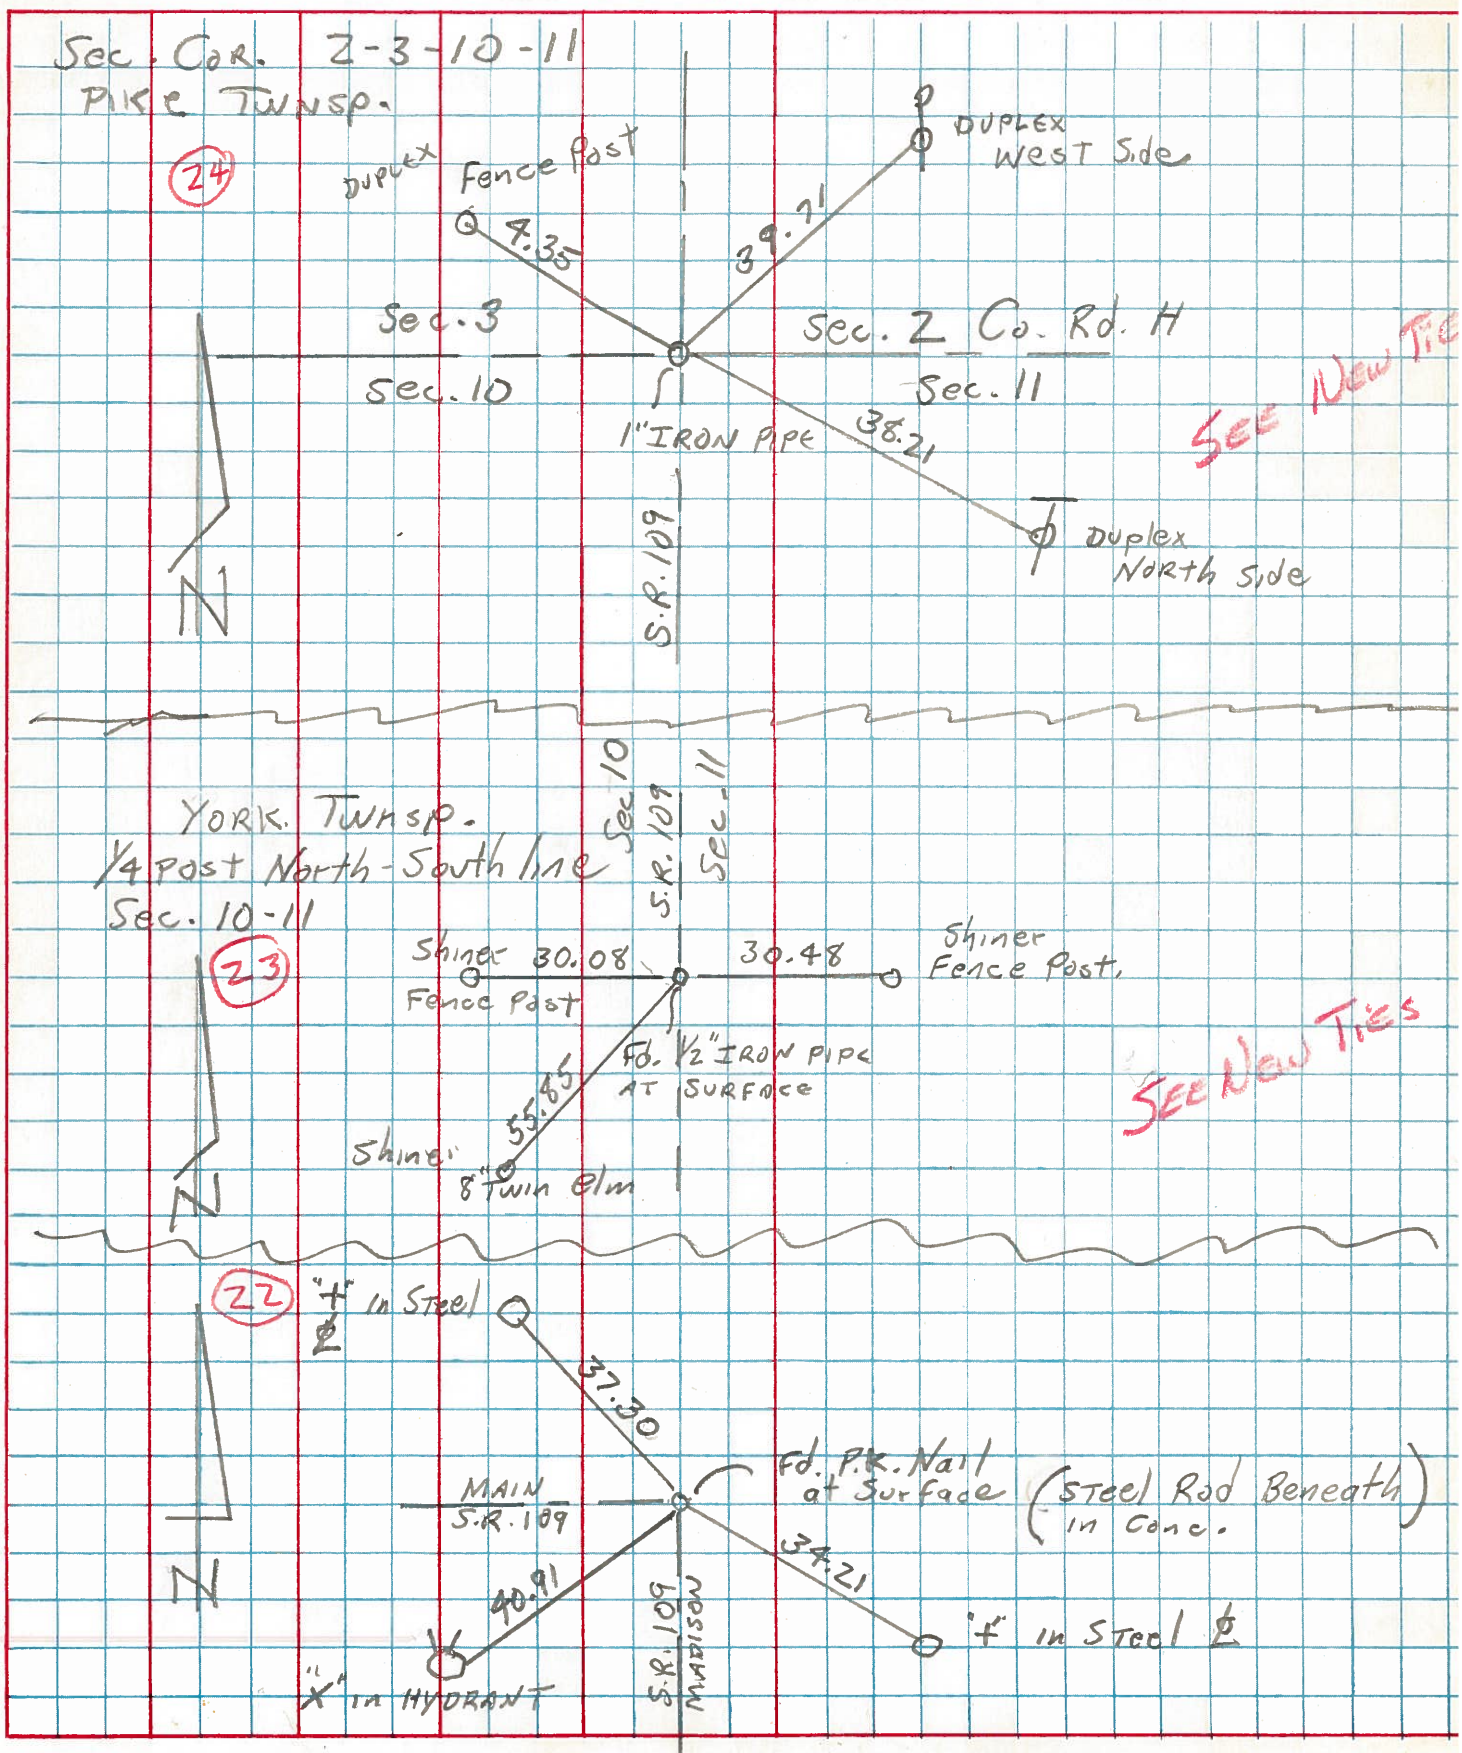 Sec. Cor. 2-3-10-11
Pike Twnsp.
24
DUPLEX Fence Post
DUPLEX
West Side
4.35
39.71
Sec. 3
Sec. 2 Co. Rd. H
Sec. 10
Sec. 11
SEE NEW TIE
1" IRON PIPE
38.21
S.R. 109
Duplex
North Side
N
Sec 10
S.R. 109
Sec. 11
York Twnsp.
1/4 post North-South line
Sec. 10-11
23
Shiner 30.08
Fence Post
30.48
Shiner
Fence Post.
Fd. 1/2" IRON PIPE
AT SURFACE
SEE NEW TIES
55.85
Shiner
8" Twin Elm
N
22
"+" in Steel
37.30
MAIN
S.R. 109
Fd. P.K. Nail
at Surface (Steel Rod Beneath
in Conc.)
34.21
40.91
N
S.R. 109
MADISON
"+" in Steel
"X" in HYDRANT